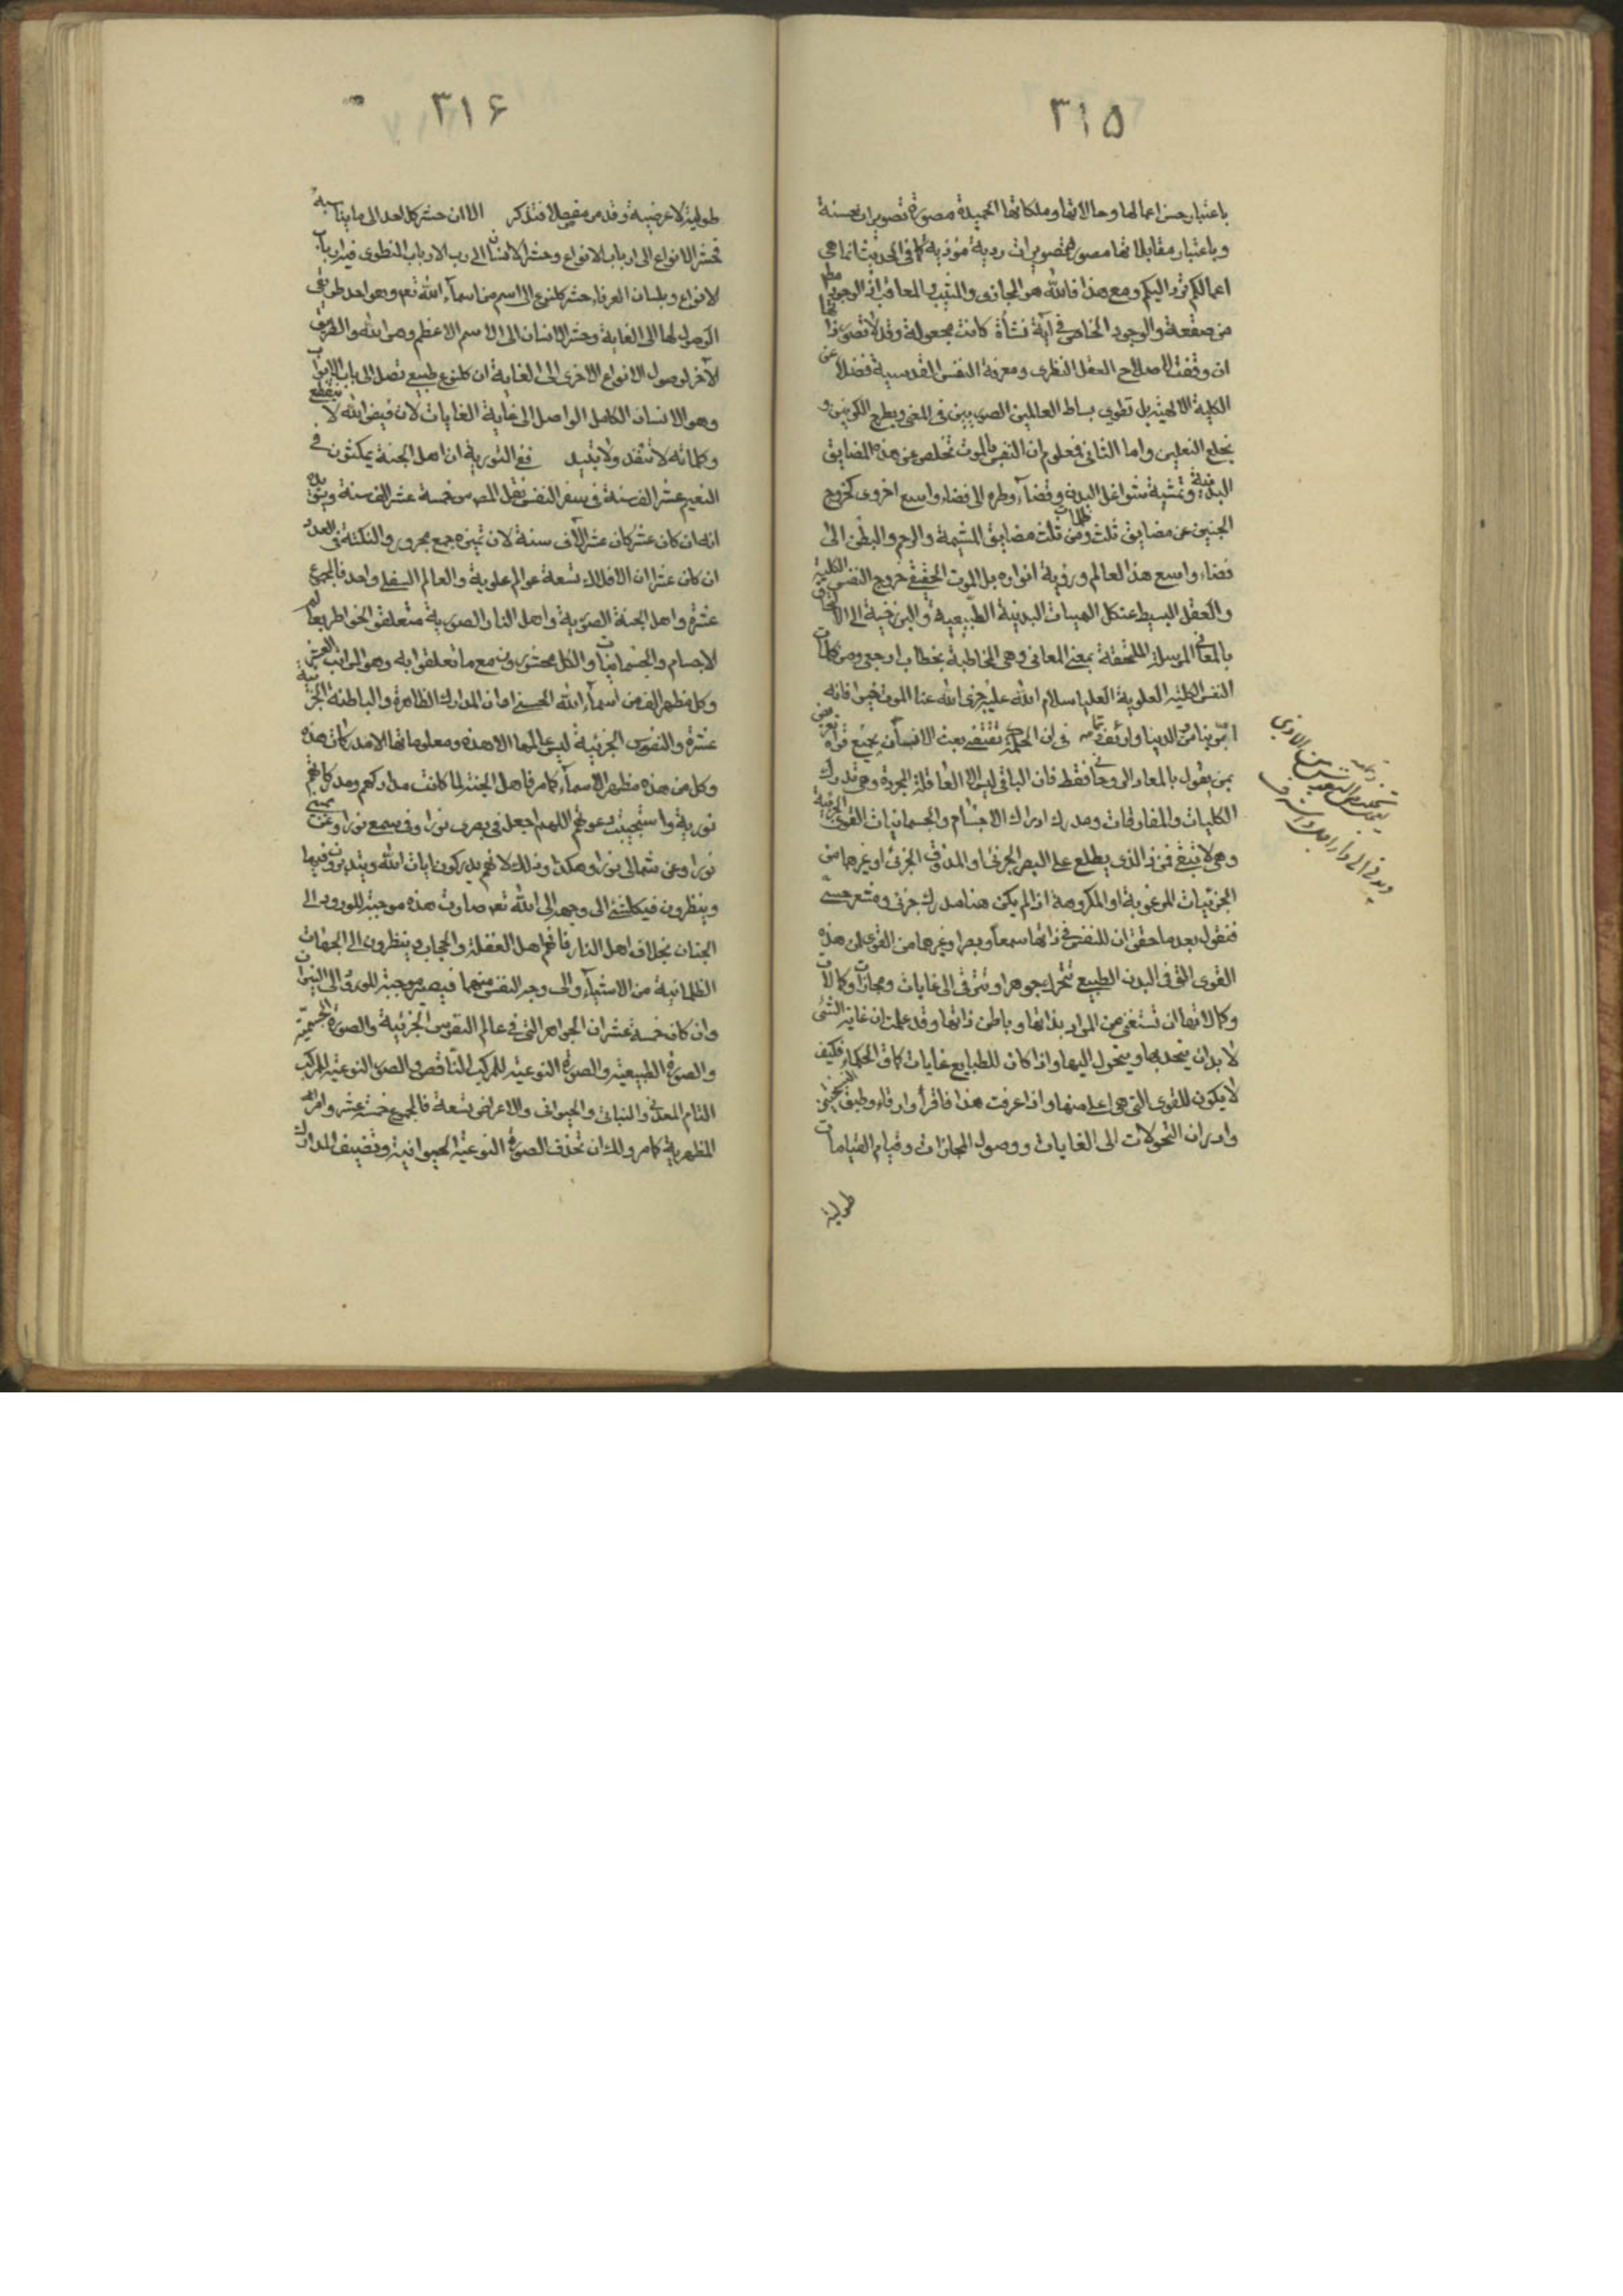 ٣١۵
باعتبار حسن اعمالها وحالاتها وملكاتها الحميدة مصورة تصويرات حسنة
وباعتبار مقابلاتها مصورة تصويرات ردية مؤذية كما في الحديث انما هي
اعمالكم ترد اليكم ومع هذا فالله هو المجازى والمثيب والمعاقب اذ الوجود مطلقا
من صقعه والوجود الخاص في آية نشأة كانت مجعولة وقد لا تصورا
ان وقفت لاصلاح العقل النظرى ومعرفة النفس القدسية فضلا عن
الكلية الالهية بل تطوى بساط العالمين الصوريين في المعنى وبطرح الكونين و
بخلع النعلين واما الثانى فمعلوم ان النفس بالموت تخلص عن هذه المضايق
البدنية وتمشية شواغل البدن وقضاء وطره الى فضاء واسع اخروى كخروج
الجنين عن مضايق ثلث ومن ظلمات ثلث مضايق المشيمة والرحم والبطن الى
فضاء واسع هذا العالم ورؤية انواره بل الموت الحقيقى خروج النفس الكلية
والعقل البسيط عن كل الهيئات البدنية الطبيعية والبرزخية الى الالحاق
بالمعانى المرسلة اللحقة بمعنى المعانى وهى المخاطبة بخطاب ارجعى ومن كلمات
النفس الكلية العلوية العليا سلام الله عليه جزى الله عنا الموت خيرا فانه
ابر بنا من الدنيا وارئف تمامه في ان الحكمة تقتضى بعث الانسان بجميع قواه تعريض
بمن يقول بالمعاد الروحانى فقط فان الباقى ليس الا العاقلة المجردة وهى تدرك
الكليات والمفارقات ومدرك ادراك الاجسام والجسمانيات القوى الجزئية
وهى لا تبقى فمن ذا الذى يطلع على البصر الجزئى او المذوق الجزئى او غيرهما من
الجزئيات المرغوبة او المكروهة اذ لم يكن هنا مدرك جزئى ومشعر حسى
فنقول بعد ما حقق ان للنفس في ذاتها سمعا وبصرا وغيرهما من القوى ان هذه
القوى التى في البدن الطبيعى تتحرك جوهرا وتترقى الى غايات ومجازات وكمالات
وكمالاتها ان تستغنى عن المواد بذاتها وباطن ذاتها وقد علمت ان غاية الشئ
لا بد ان يتحد بها ويتحول اليها واذا كان للطبايع غايات كما قال الحكماء فكيف
لا يكون للقوى التى هى اعلى منها واذا عرفت هذا فاقرأ وارقاء وطبق
وادر ان التحولات الى الغايات ووصول المجازات وقيام القيامات
طولية
٣١۶
طولية لا عرضية وقد مر مفصلا فتذكر الا ان حشر كل احد الى ما يناسبه
فحشر الانواع الى ارباب الانواع وحشر الانسان الى رب الارباب المنطوى فيه ارباب
الانواع وبلسان العرفاء حشر كل نوع الى اسم من اسماء الله تع وهو احد طريقى
الوصول لها الى الغاية وحشر الانسان الى الاسم الاعظم وهو الله والطريق
الآخر لوصول الانواع الاخرى الى الغاية ان كل نوع طبيعى تصل الى باب الابواب
وهو الانسان الكامل الواصل الى غاية الغايات لان فيض الله لا ينقطع
وكلماته لا تنفد ولا تبيد ففى التورية ان اهل الجنة يمكثون في
النعيم عشر الف سنة في سفر النفس نقل المص س خمسة عشر الف سنة
انه ان كان عشر كان عشر آلاف سنة لان تميزه جمع مجرور والنكتة في العدد
ان كان عشرا ان الافلاك تسعة عوالم علوية والعالم السفلى واحد فالجميع
عشرة واهل الجنة الصورية واهل النار الصورية متعلقوا الخواطر بعالم
الاجسام والجسمانيات والكل محشورون مع ما تعلقوا به وهو المراتب العشر
وكل مظهر الف من اسماء الله الحسنى او ان المدارك الظاهرة والباطنة الجزئية
عشرة والنفوس الجزئية ليس عالمها الا هذه ومعلوماتها الا مدركات هذه
وكل من هذه مظهر الاسماء كما مر فاهل الجنة لما كانت مداركهم ومدركاتهم
نورية واستجيبت دعوتهم اللهم اجعل في بصرى نورا وفي سمعى نورا وعن يمينى
نورا وعن شمالى نورا وهكذا وذلك لانهم يدركون ايات الله ويتدبرون فيها
وينظرون في كل شئ الى وجهه الى الله تع صارت هذه موجبة للورود الى
الجنان بخلاف اهل النار فانهم اهل الغفلة والحجاب وينظرون الى الجهات
الظلمانية من الاشياء والى وجه النفس منهما فيصير موجبة للورود الى النيران
وان كان خمسة عشر ان الجواهر التى في عالم النفوس الجزئية والصورة الجسمية
والصورة الطبيعية والصورة النوعية للمركب الناقص والصور النوعية للمركب
التام المعدنى والنباتى والحيوانى والاعراض تسعة فالجميع خمسة عشر وامر
المظهرية كما مر ولك ان تحذف الصورة النوعية الحيوانية وتضيف المدارك